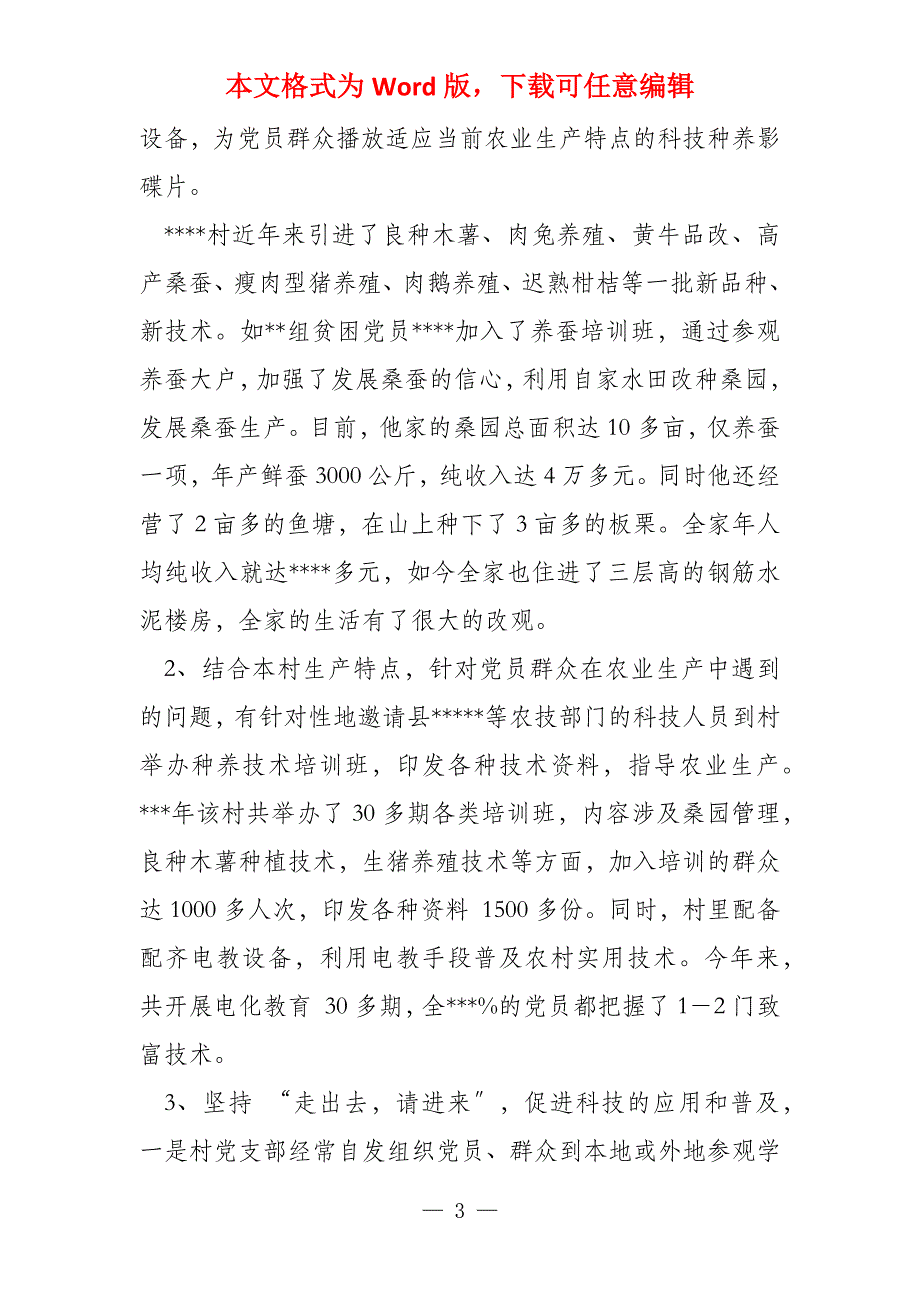 本文格式为 Word 版，下载可任意编辑
设备，为党员群众播放适应当前农业生产特点的科技种养影
碟片。
****村近年来引进了良种木薯、肉兔养殖、黄牛品改、高
产桑蚕、瘦肉型猪养殖、肉鹅养殖、迟熟柑桔等一批新品种、
新技术。如**组贫困党员****加入了养蚕培训班，通过参观
养蚕大户，加强了发展桑蚕的信心，利用自家水田改种桑园，
发展桑蚕生产。目前，他家的桑园总面积达 10 多亩，仅养蚕
一项，年产鲜蚕 3000 公斤，纯收入达 4 万多元。同时他还经
营了 2 亩多的鱼塘，在山上种下了 3 亩多的板栗。全家年人
均纯收入就达****多元，如今全家也住进了三层高的钢筋水
泥楼房，全家的生活有了很大的改观。
2、结合本村生产特点，针对党员群众在农业生产中遇到
的问题，有针对性地邀请县*****等农技部门的科技人员到村
举办种养技术培训班，印发各种技术资料，指导农业生产。
***年该村共举办了 30 多期各类培训班，内容涉及桑园管理，
良种木薯种植技术，生猪养殖技术等方面，加入培训的群众
达 1000 多人次，印发各种资料 1500 多份。同时，村里配备
配齐电教设备，利用电教手段普及农村实用技术。今年来，
共开展电化教育 30 多期，全***%的党员都把握了 1－2 门致
富技术。
3、坚持 “走出去，请进来〞，促进科技的应用和普及，
一是村党支部经常自发组织党员、群众到本地或外地参观学
— 3 —